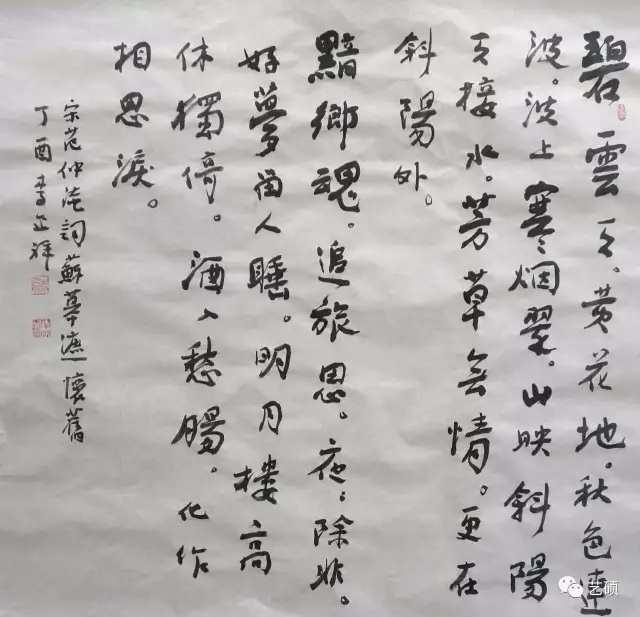 碧雲天。黄花地。秋色連
波。波上寒烟翠。山映斜陽
天接水。芳草無情。更在
斜陽外。
黯鄉魂。追旅思。夜々除非。
好夢留人睡。明月樓高
休獨倚。酒入愁腸。化作
相思淚。
宋范仲淹詞蘇幕遮懷舊
丁酉書正祥
艺硕